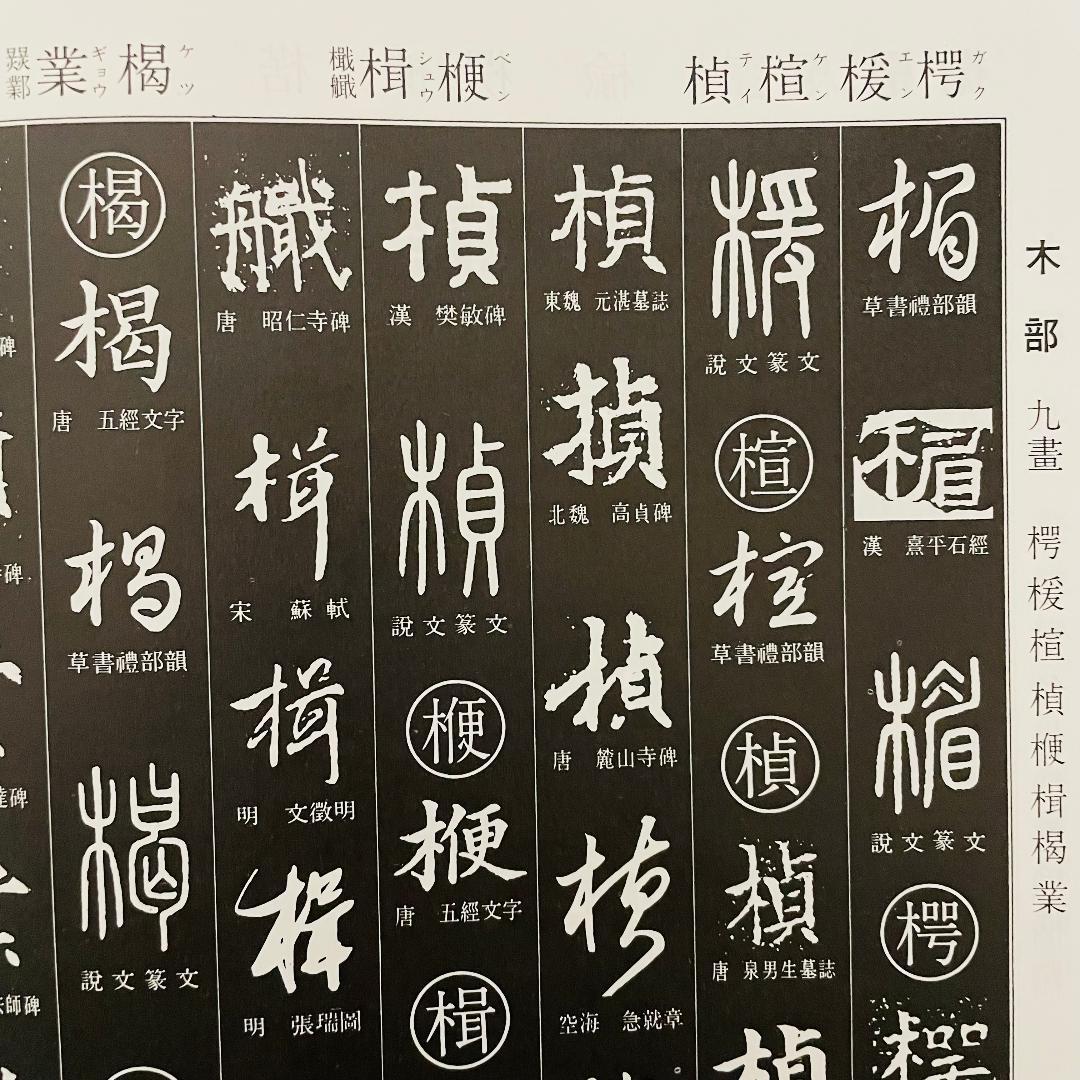 楬 ケツ 業 ギョウ
楩 ベン 楫 シュウ
楞 ガク 楥 エン 楦 ケン 楨 テイ
木部 九畫 楥楦楨楩楫楬業
楣
草書禮部韻
楣
漢 熹平石經
楣
說文篆文
楥
說文篆文
楦
楦
草書禮部韻
楨
楨
唐 泉男生墓誌
楨
楨
東魏 元湛墓誌
楨
北魏 高貞碑
楨
唐 麓山寺碑
楨
空海 急就章
楨
漢 樊敏碑
楨
說文篆文
楩
楩
唐 五經文字
楫
唐 昭仁寺碑
楫
宋 蘇軾
楫
明 文徵明
楫
明 張瑞圖
楬
楬
唐 五經文字
楬
草書禮部韻
楬
說文篆文
碑
碑
碑
師碑